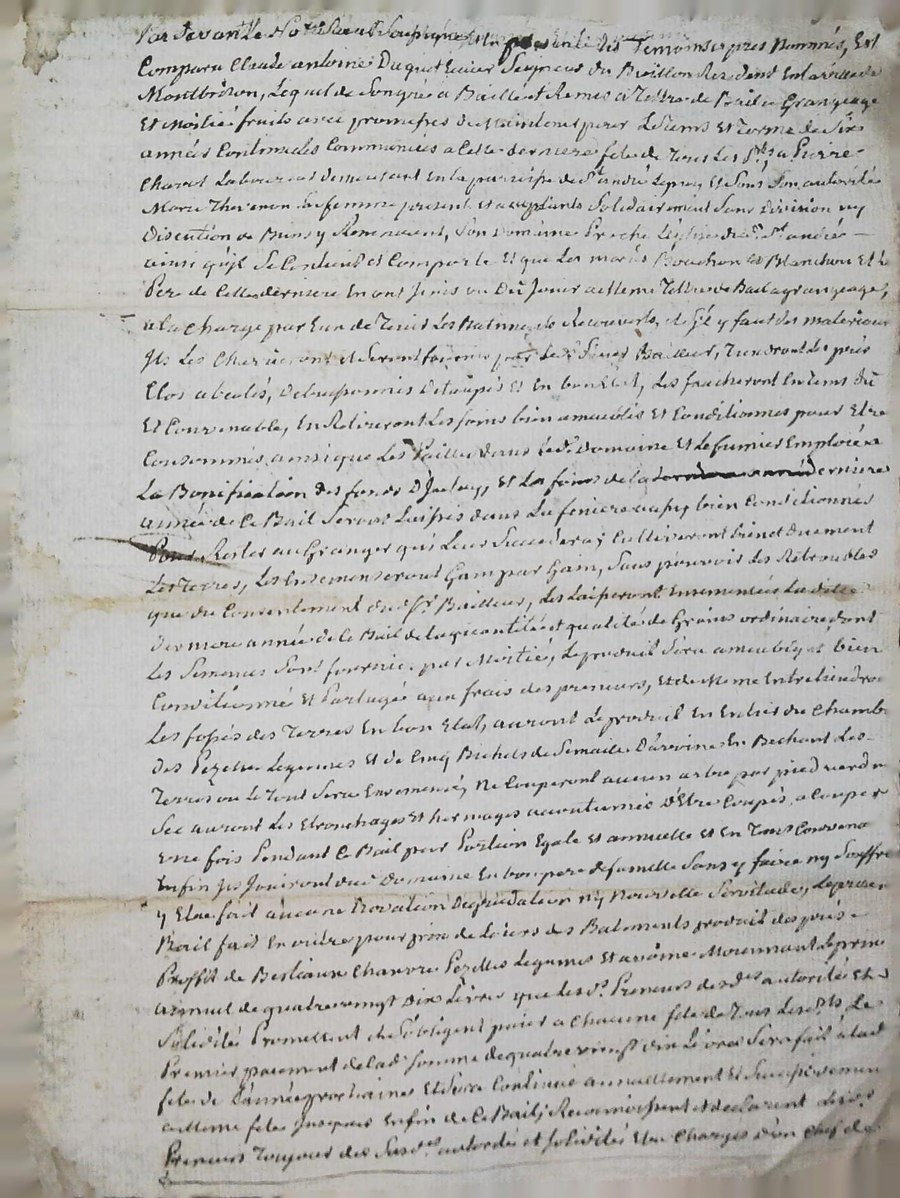 Par devant Le No.re Royal Soussigné et en presence des Temoins apres Nommés, Est
Comparu Claude antoine Duguet Ecuier Seigneur du Bullion Residant En la ville de
Montbrison, Lequel de Son gré a Baillé et Remis a Tittre de Bail a Grangeage
Et Moitié fruits avec promesses de Maintenir pour Le Tems Et Terme de Six
années Continuelles Commencées a Cette derniere fete de Tous Les S.ts a Pierre
Charet Laboureur demeurant En la parroisse de S.t andré Lepuy Et Sous Son autorité
Marie Thevenon Sa femme present et acceptants Solidairement Sans Division ny
Discution de Biens y Renoncent, Son Domaine Proche L'eglise dud. S.t andré
ainsi qu'il Se Contient et Comporte Et que Les mariés Bouchon et Blanchon Et Le
Per de Cette derniere En ont Jouis au Du Jour a Meme Tittre de Bail a grangeage,
a la Charge par Eux de Tenir Les Batiments Recouverts, et S'il y faut des materiaux
Ils Les Charieront et Seront fournis par Le d. Sieur Bailleur, Tiendront Les près
Clos abealés, Debuissonnés Detaupés Et En bon Etat, Les faucheront En tems Dû
Et Convenable, En Retireront Les foins bien ameublis Et Conditionnés pour Etre
Consommés ainsi que Les Pailles dans Led. Domaine Et Le fumier Employé a
La Bonification des fonds D'Iceluy, Et Les foins de la derniere
année de Ce Bail Seront Laissés dans La feniere aussy bien Conditionnés
Pour Rester au Granger qui Leur Succedera; Cultiveront bien et Duement
Les Terres, Les Ensemenseront Gam par Gam, Sans pouvoir Les Retroubles
que du Consentement dud. S.r Bailleur, Les Laisseront Ensemencées La ditte
derniere année de Ce Bail de La quantité et qualité de Grains ordinaire dont
Les Semences Sont fournies par Moitié, Le produit Sera ameubly et bien
Conditionné Et Partagé aux frais des preneurs, Et de Meme Entretiendront
Les fossés des Terres En bon Etat, auront Le produit En Entier du Chambon
Des Pezettes Legumes Et de Cinq Bichets de Semaille D'avoine En Bechant Les
Terres ou Le tout Sera Ensemencé, Ne Couperont aucun arbre par pied verd ny
Sec auront Les Etronchages Et hermages accoutumés D'Etre Coupés, a Couper
une fois Pendant Ce Bail par Portion Egale Et annuelle Et En Tems Convena
Enfin Ils Jouiront dud. Domaine En bon pere de famille Sans y faire ny Souffrir
y Etre fait aucune Novation Degradation ny Nouvelle Servitude, Le present
Bail fait En outre pour prix de Loiers des Batiments produit des près
Proffit de Bestiaux Chanvre Pezettes Legumes Et avoine Moiennant Le prix
annuel de quatre vingt dix Livres que Les d. Preneurs des d.es autorité Et
Solidité Promettent et S'obligent paier a Chacune fete de Tous Les S.ts Le
Premier paiement de lad. Somme de quatre vingt dix Livres Sera fait a lad.
fete de L'année prochaine Et Sera Continué annuellement Et Successivement
a Meme fete Jusques Enfin de Ce Bail; Reconnoissent et declarent Lesd.
Preneurs Toujour des Sus d.es autorités et Solidités Etre Chargés D'un Chef de